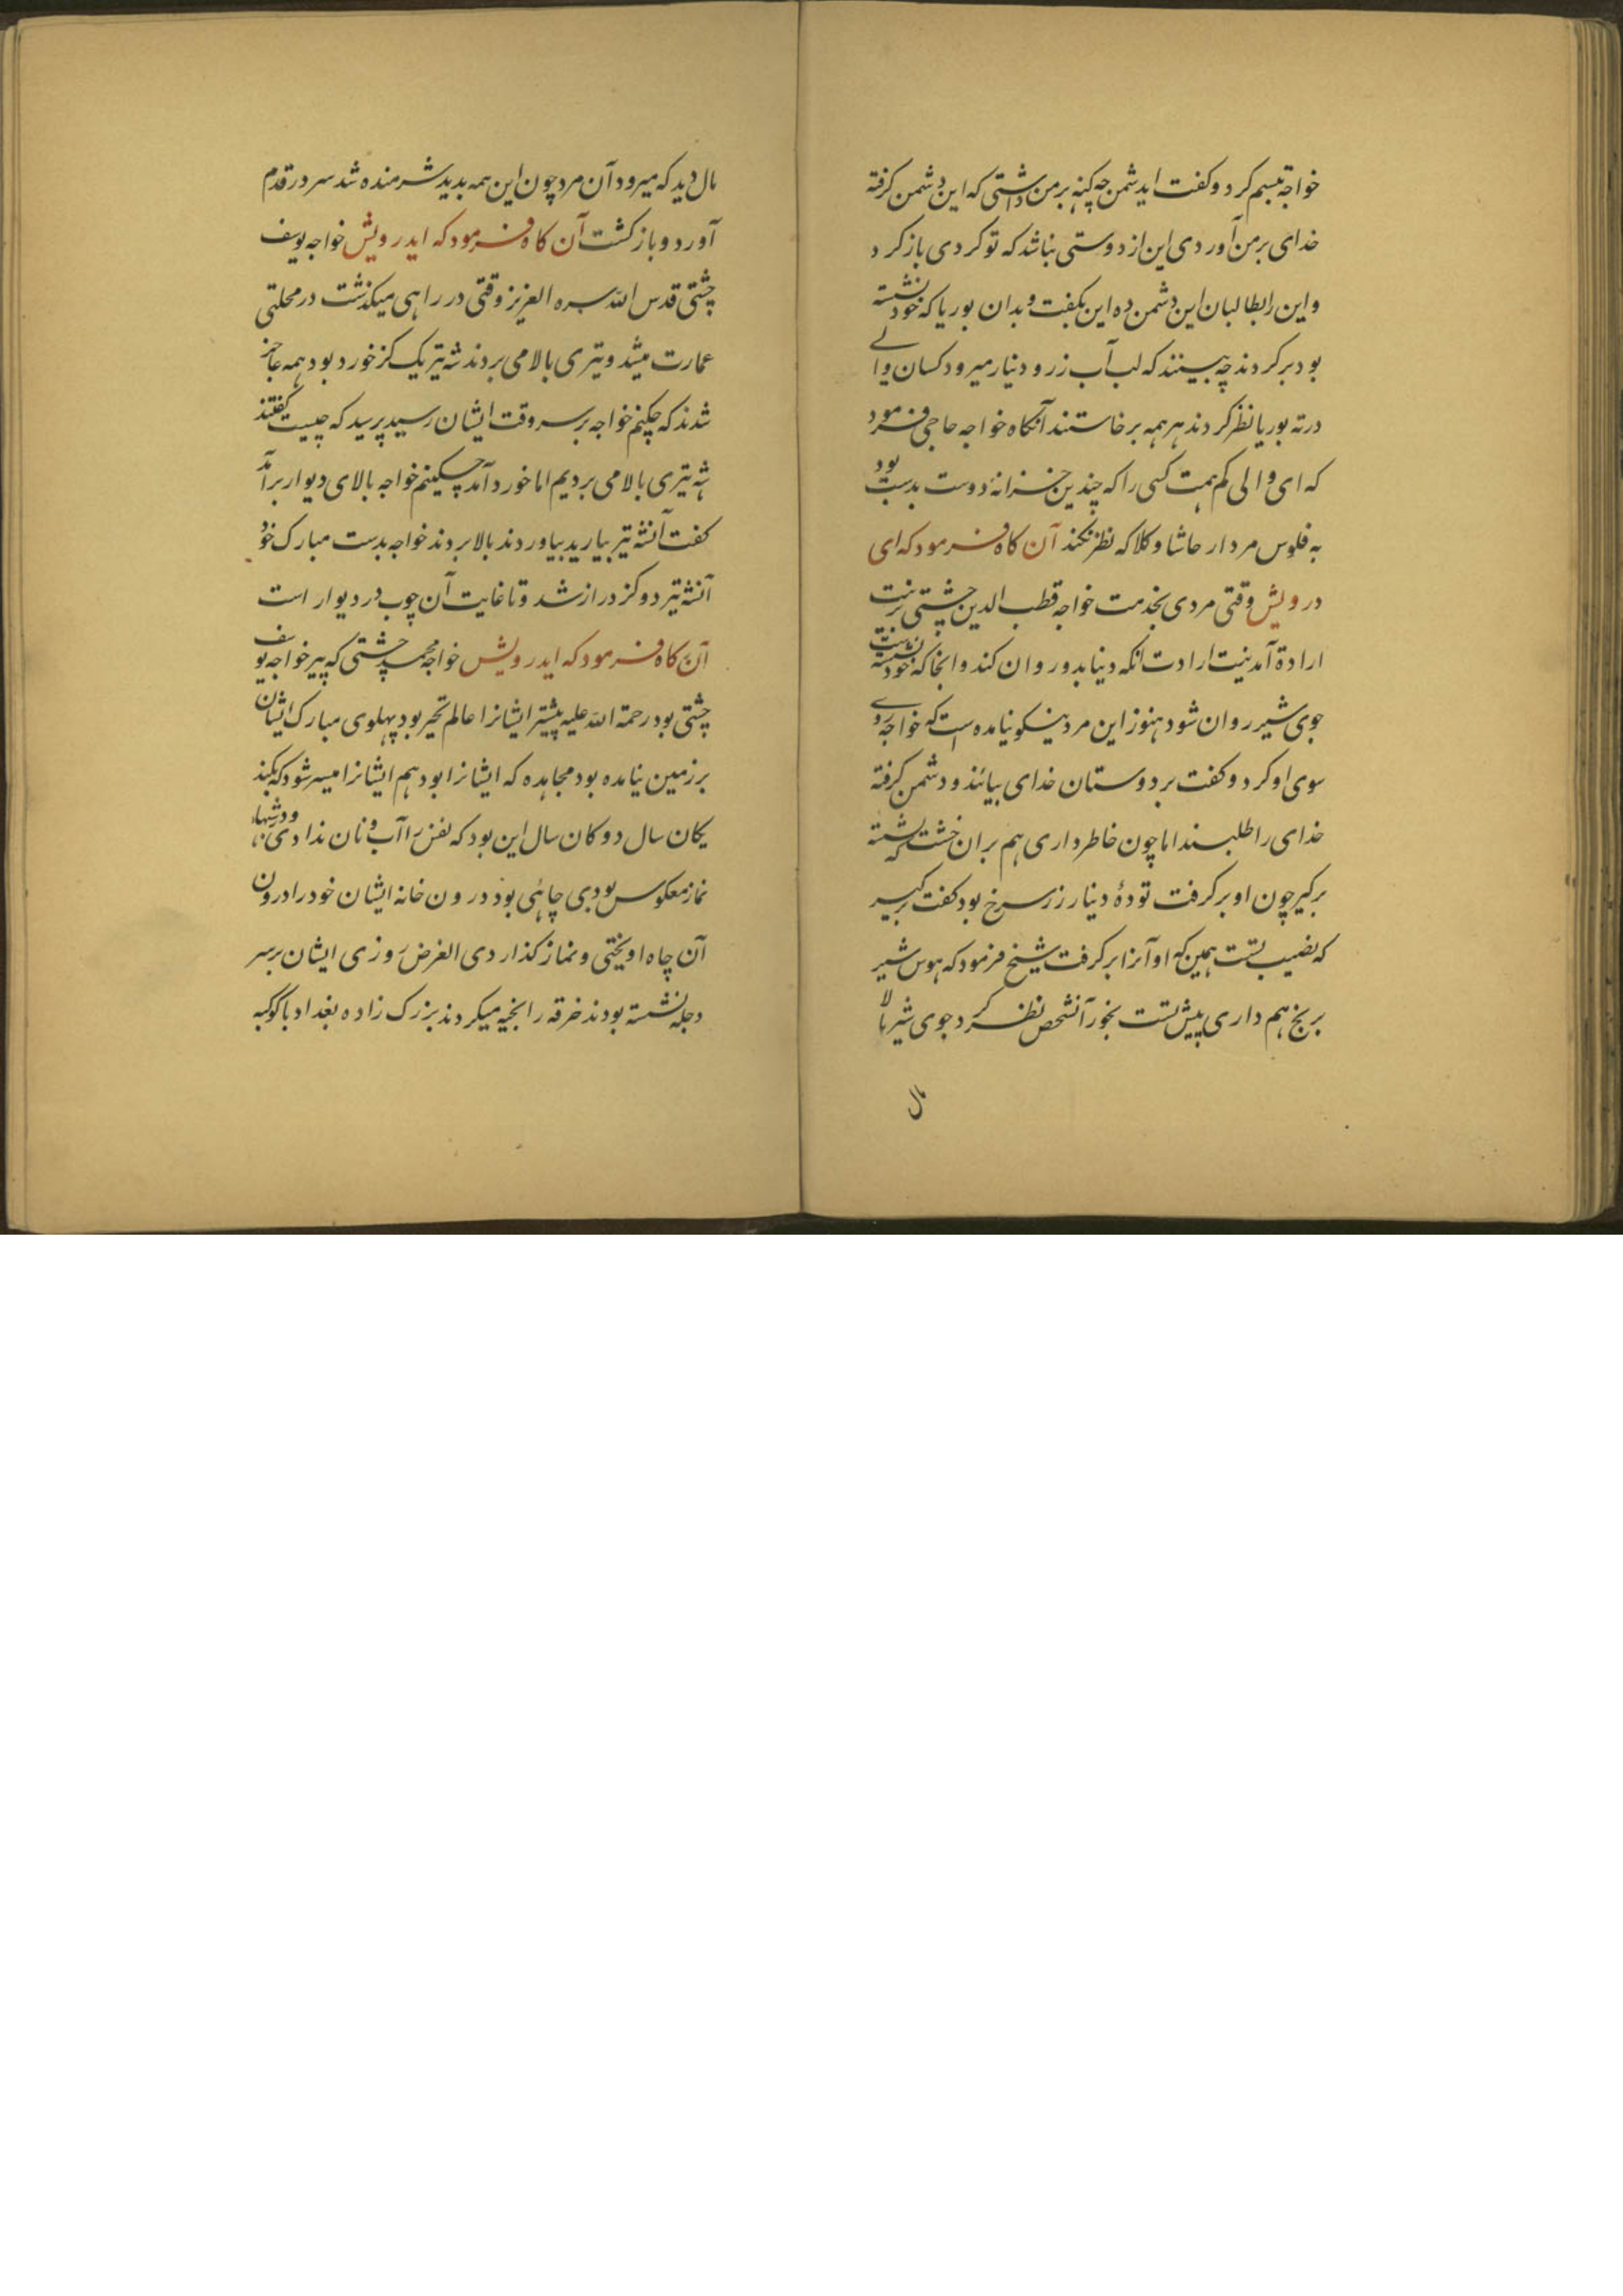 خواجه تبسم کرد و کفت ایدشمن چه کینه بر من داشتی که این دشمن کرفته
خدای بر من آوردی این از دوستی نباشد که تو کردی باز کرد
و این را بطالبان این دشمن ده این بکفت و بدان بوریا که خود نشسته
بود بر کردند چه بینند که لب آب زر و دنیار میرود کسان والی
در ته بوریا نظر کردند هر همه برخاستند آنکاه خواجه حاجی فرمود
که ای والی کم همت کسی را که چندین خزانهٔ دوست بدست بود
به فلوس مردار حاشا و کلا که نظر نکند آن کاه فرمود که ای
درویش وقتی مردی بخدمت خواجه قطب الدین چشتی بر نیت
ارادة آمد نیت ارادت انکه دنیا بدو روان کند و انجا که خود نشسته است
جوی شیر روان شود هنوز این مرد نیکو نیامده است که خواجه روی
سوی او کرد و کفت بر دوستان خدای بیائند و دشمن کرفته
خدای را طلبند اما چون خاطر داری هم بران خشت که نشسته
برکیر چون او بر کرفت تودهٔ دینار زر سرخ بود کفت برکیر
که نصیب تست همین که او آنرا بر کرفت شیخ فرمود که هوس شیر
برنج هم داری پیش تست بخور آنشخص نظر کرد جوی شیر مالا
مال
مال دید که میرود آن مرد چون این همه بدید شرمنده شد سر در قدم
آورد و باز کشت آن کاه فرمود که ایدرویش خواجه یوسف
چشتی قدس الله سره العزیز وقتی در راهی میکذشت در محلتی
عمارت میشد و تیری بالا می بردند شه تیر یک کز خورد بود همه عاجز
شدند که چکنم خواجه بر سر وقت ایشان رسید پرسید که چیست کفتند
شه تیری بالا می بردیم اما خورد آمد چکینم خواجه بالای دیوار برآمد
کفت آنشه تیر بیارید بیاوردند بالا بردند خواجه بدست مبارک خود
آنشه تیر دو کز دراز شد و تا غایت آن چوب در دیوار است
آن کاه فرمود که ایدرویش خواجه محمد چشتی که پیر خواجه یوسف
چشتی بود رحمة الله علیه پیشتر ایشانرا عالم تحیر بود پهلوی مبارک ایشان
بر زمین نیامده بود مجاهده که ایشانرا بود هم ایشانرا میسر شود که بکند
یکان سال دوکان سال این بود که نفس را آب و نان ندادی و در شبها
نماز معکوس بودی چاهی بود درون خانه ایشان خود را درون
آن چاه اویختی و نماز کذاردی الغرض روزی ایشان بر سر
دجله نشسته بودند خرقه را بخیه میکردند بزرک زاده بغداد با کوکبه